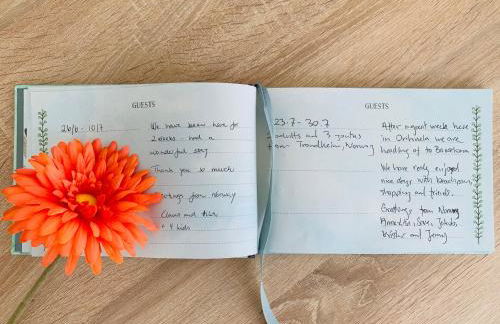 GUESTS
26/6 - 10/7
We have been here for
2 weeks - had a
wonderful stay
Thank you so much
from Norway
Claus and
+ 4 kids
GUESTS
23.7 - 30.7
adults and 3 youths
Trondheim, Norway
After a great week here
in Orihuela we are
heading of to Barcelona
We have really enjoyed
nice days with beach,
shopping and friends.
Greetings from Norway
and Jenny